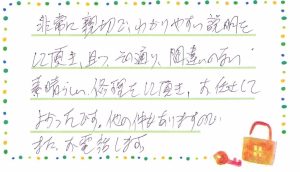 非常に親切で、わかりやすい説明を
して頂き、且つ、その通り、間違いの無い
素晴らしい修理をして頂き、お任せして
よかったです。他の件もありますので
また、お電話します。